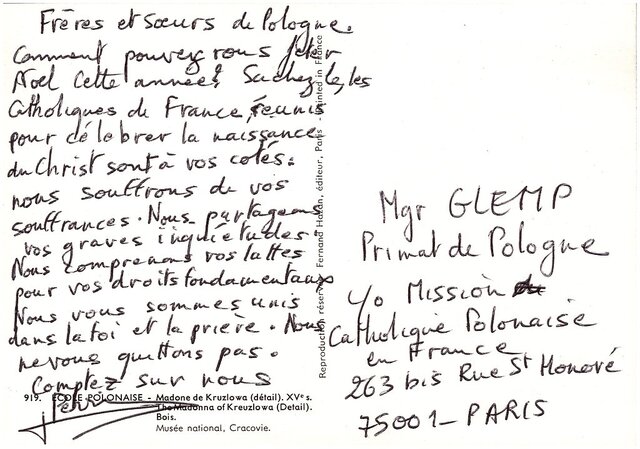 Frères et sœurs de Pologne.
Comment pouvez vous fêter
Noël cette année? Sachez le, les
Catholiques de France, réunis
pour célébrer la naissance
du Christ sont à vos cotés.
nous souffrons de vos
souffrances. Nous partageons
vos graves inquiétudes.
Nous comprenons vos luttes
pour vos droits fondamentaux
Nous vous sommes unis
dans la foi et la prière. Nous
ne vous quittons pas.
Comptez sur nous
919. ECOLE POLONAISE - Madone de Kruzlowa (détail). XVe s.
The Madonna of Kreuzlowa (Detail).
Bois.
Musée national, Cracovie.
Reproduction réservée Fernand Hazan, éditeur, Paris Printed in France
Mgr GLEMP
Primat de Pologne
c/o Mission
Catholique Polonaise
en France
263 bis Rue St Honoré
75001 - PARIS